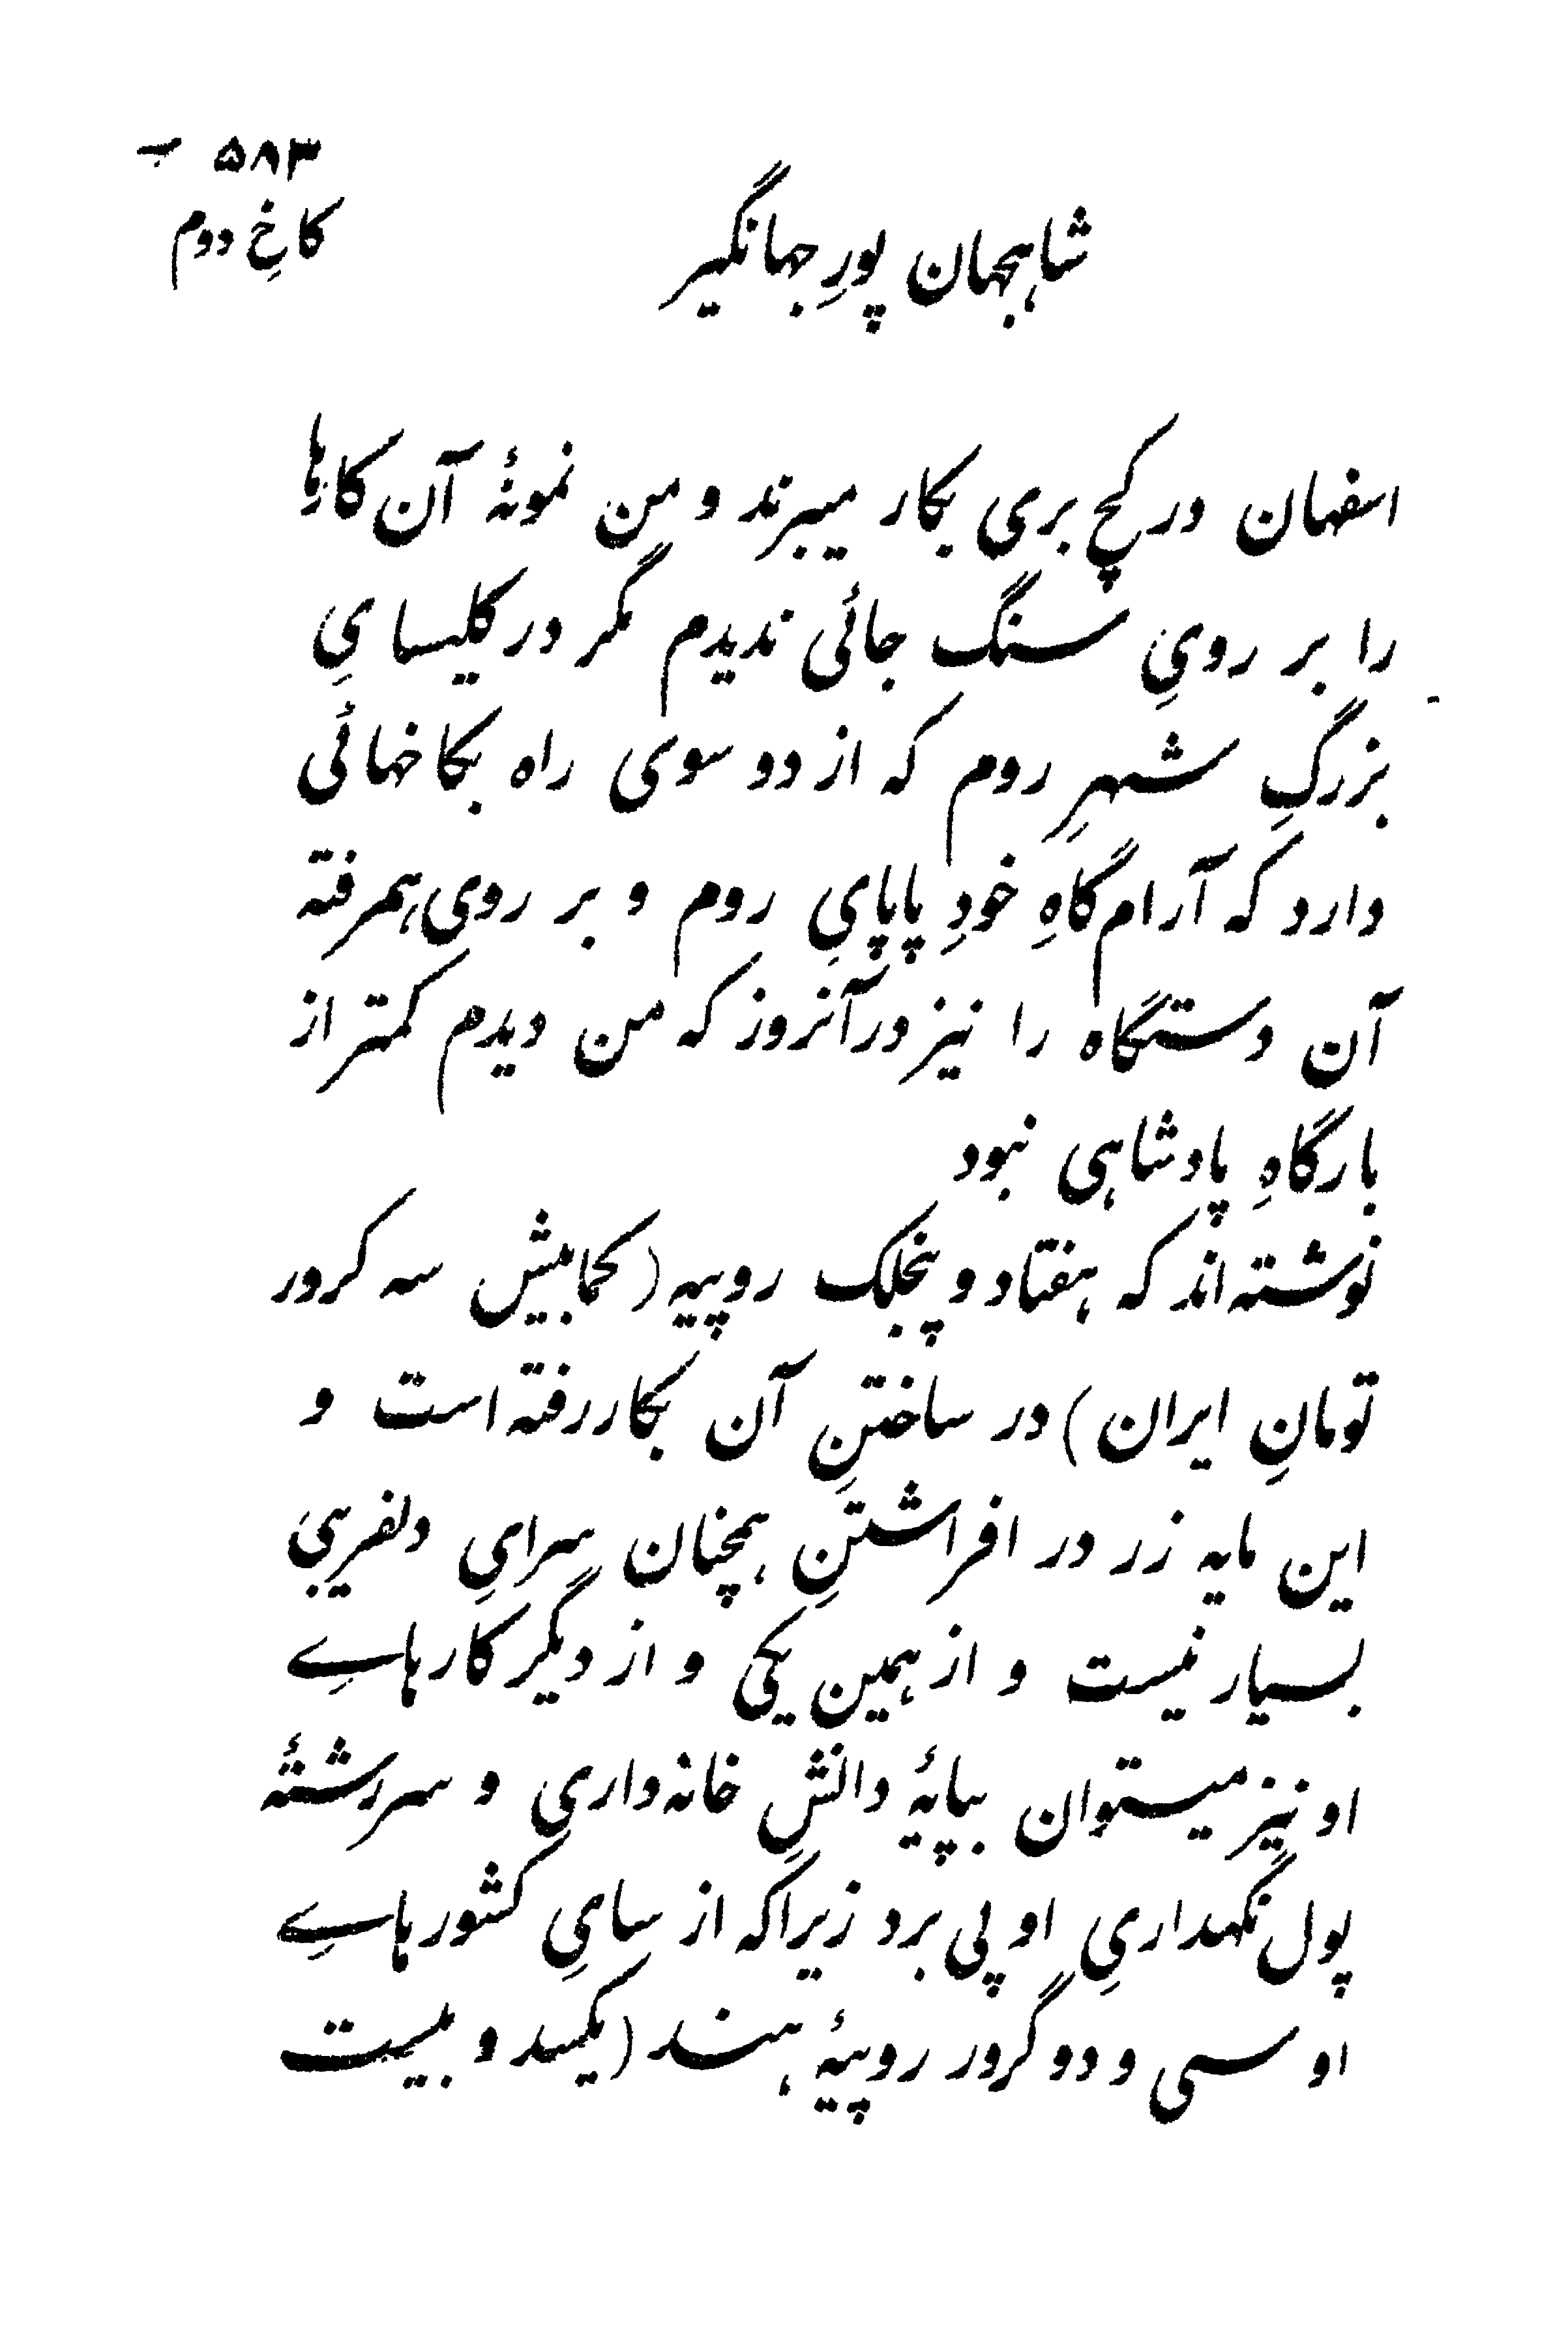 ۵۸۳
کاخِ دوم
شاهجهان پورِ جهانگیر
اسفهان در گچ بری بکار میبرند و من نمونهٔ آن کارها
را بر رویِ سنگ جائی ندیدم مگر در کلیسایِ
بزرگِ شهرِ روم که از دو سوی راه بکاخهائی
دارد که آرام گاهِ خودِ پاپایِ روم و بر رویِ همرفته
آن دستگاه را نیز در آنروز که من دیدم کمتر از
بارگاهِ پادشاهی نبود
نوشته‌اند که هفتاد و پنجلک روپیه (کمابیش سه کرور
تومانِ ایران) در ساختنِ آن بکار رفته است و
این مایه زر در افراشتنِ همچنان سرایِ دلفریبی
بسیار نیست و از همین یکی و از دیگر کارهایِ
او نیز میتوان بپایهٔ دانشِ خانه‌داریِ و سررشتهٔ
پول نگهداریِ او پی برد زیرا که از سایِ کشورهایِ
او سی و دو کرور روپیهٔ هند (یکسد و بیست